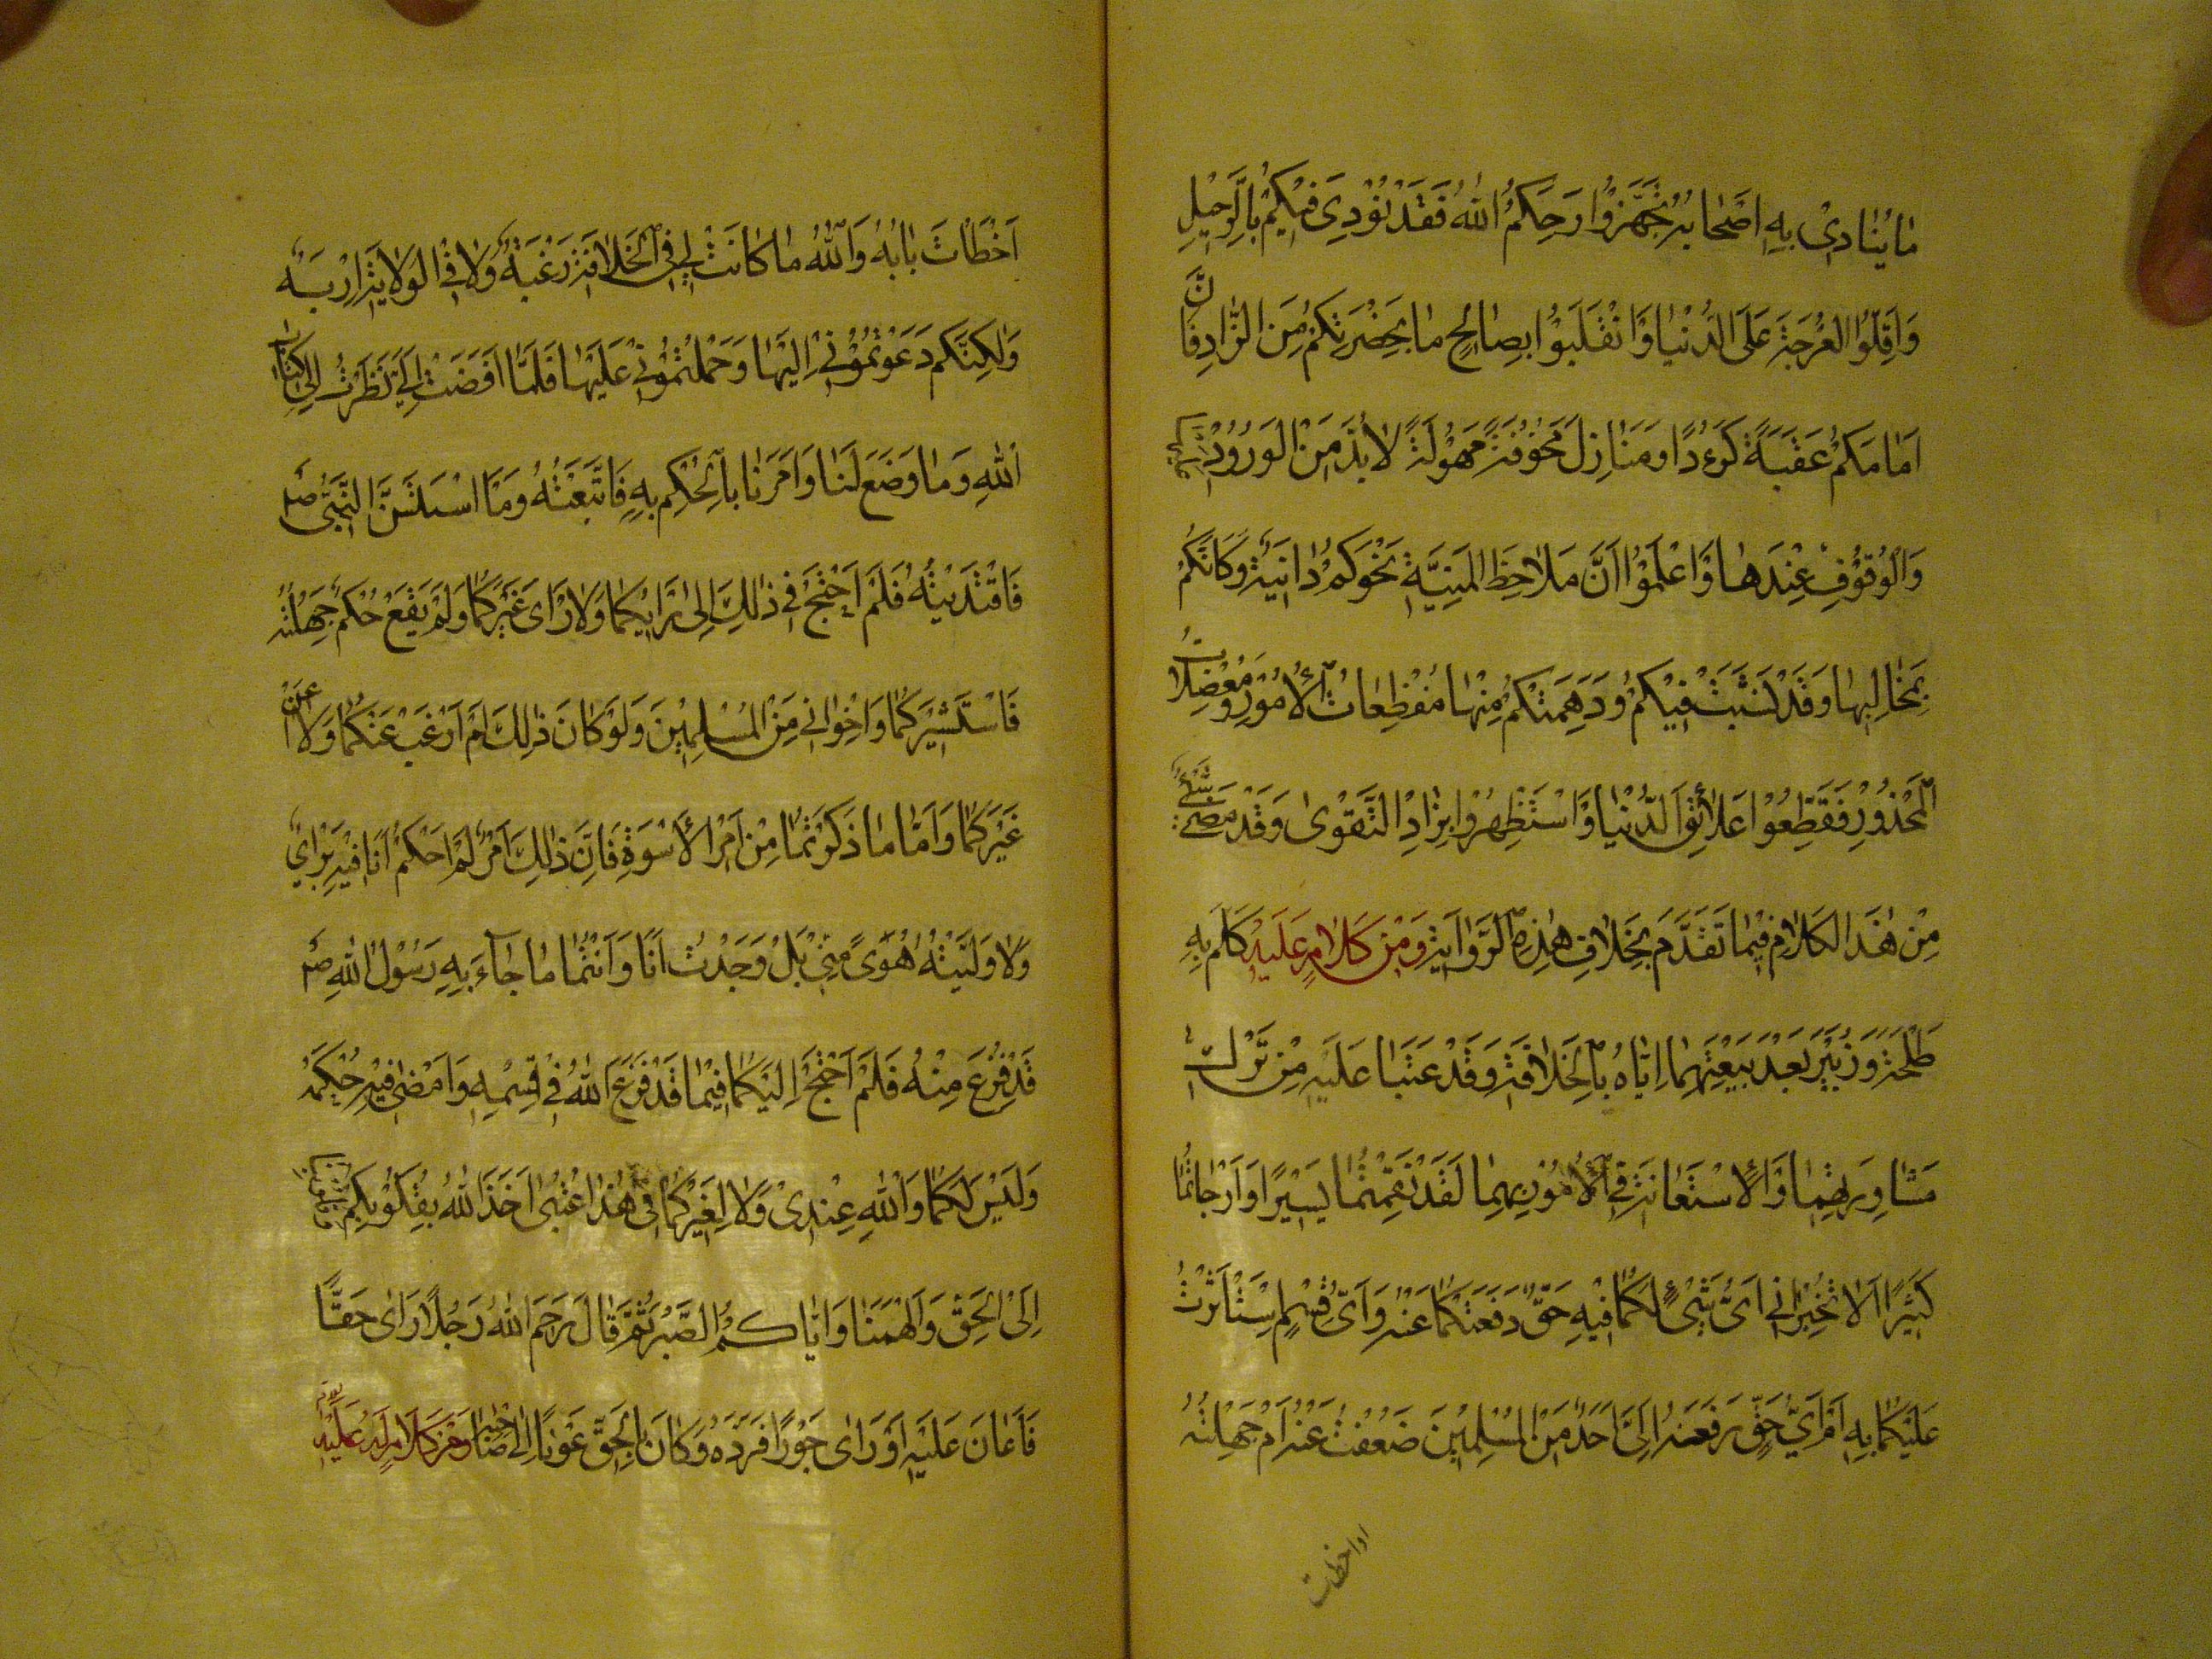 مَا يُنَادِىْ بِهِ اَصْحَابَهُ تَجَهَّزُوْا رَحِمَكُمُ اللهُ فَقَدْ نُوْدِىَ فِيْكُمْ بِالرَّحِيْلِ
وَاَقِلُّوا الْعُرْجَةَ عَلَى الدُّنْيَا وَانْقَلِبُوْا بِصَالِحِ مَا بِحَضْرَتِكُمْ مِنَ الزَّادِ فَاِنَّ
اَمَامَكُمْ عَقَبَةً كَؤُدًا وَمَنَازِلَ مَخُوْفَةً مَهُوْلَةً لَابُدَّ مِنَ الْوُرُوْدِ عَلَيْهَا
وَالْوُقُوْفِ عِنْدَهَا وَاعْلَمُوْا اَنَّ مَلَاحِظَ الْمَنِيَّةِ نَحْوَكُمْ دَانِيَةٌ وَكَاَنَّكُمْ
بِمَخَالِبِهَا وَقَدْ نَشَبَتْ فِيْكُمْ وَدَهَمَتْكُمْ مِنْهَا مُفْظِعَاتُ الْاُمُوْرِ وَمُعْضِلَاتُ
الْمَحْذُوْرِ فَقَطِّعُوْا عَلَائِقَ الدُّنْيَا وَاسْتَظْهِرُوْا بِزَادِ التَّقْوٰى وَقَدْ مَضٰى شَيْءٌ
مِنْ هٰذَا الْكَلَامِ فِيْمَا تَقَدَّمَ بِخَلَافِ هٰذِهِ الرِّوَايَةِ وَمِنْ كَلَامٍ عَلَيْهِ كَلَّمَ بِهِ
طَلْحَةَ وَزُبَيْرَ بَعْدَ بَيْعَتِهِمَا اِيَّاهُ بِالْخَلَافَةِ وَقَدْ عَتَبَا عَلَيْهِ مِنْ تَرْكِ
مَشَاوِرَتِهِمَا وَالْاِسْتَعَانَةِ فِى الْاُمُوْرِ بِهِمَا لَقَدْ نَقَمْتُمَا يَسِيْرًا وَاَرْجَاْتُمَا
كَثِيْرًا اَلَا تُخْبِرَانِى اَىُّ شَىْءٍ لَكُمَا فِيْهِ حَقٌّ دَفَعْتُكُمَا عَنْهُ وَاَىُّ قِسْمٍ اسْتَاْثَرْتُ
عَلَيْكُمَا بِهِ اَمْ اَيُّ حَقٍّ رَفَعَهُ اِلَيَّ اَحَدٌ مِنَ الْمُسْلِمِيْنَ ضَعُفْتُ عَنْهُ اَمْ جَهِلْتُهُ
اَخْطَاْتُ بَابَهُ وَاللهُ مَا كَانَتْ لِىْ فِى الْخَلَافَةِ رَغْبَةٌ وَلَا فِى الْوَلَايَةِ اِرْبَةٌ
وَلٰكِنَّكُمْ دَعَوْتُمُوْنِىْ اِلَيْهَا وَحَمَلْتُمُوْنِىْ عَلَيْهَا فَلَمَّا اَفْضَتْ اِلَيَّ نَظَرْتُ اِلٰى كِتَابِ
اللهِ وَمَا وَضَعَ لَنَا وَاَمَرَنَا بِالْحُكْمِ بِهِ فَاتَّبَعْتُهُ وَمَا اسْتَسَنَّ النَّبِىُّ ص
فَاقْتَدَيْتُهُ فَلَمْ اَحْتَجْ فِى ذٰلِكَ اِلٰى رَاْيِكُمَا وَلَا رَاْىِ غَيْرِكُمَا وَلَمْ يَقَعْ حُكْمٌ جَهِلْتُهُ
فَاسْتَشِيْرَكُمَا وَاِخْوَانِى مِنَ الْمُسْلِمِيْنَ وَلَوْ كَانَ ذٰلِكَ لَمْ اَرْغَبْ عَنْكُمَا وَلَا عَنْ
غَيْرِكُمَا وَاَمَّا مَا ذَكَرْتُمَا مِنْ اَمْرِ الْاُسْوَةِ فَاِنَّ ذٰلِكَ اَمْرٌ لَمْ اَحْكُمْ اَنَا فِيْهِ بِرَاْيِىْ
وَلَا وَلِيْتُهُ هَوًى مِنِّىْ بَلْ وَجَدْتُ اَنَا وَاَنْتُمَا مَا جَاءَ بِهِ رَسُوْلُ اللهِ ص
قَدْ فُرِغَ مِنْهُ فَلَمْ اَحْتَجْ اِلَيْكُمَا فِيْمَا قَدْ فَرَغَ اللهُ فِى قِسْمِهِ وَاَمْضٰى فِيْهِ حُكْمَهُ
وَلَيْسَ لَكُمَا وَاللهِ عِنْدِىْ وَلَا لِغَيْرِكُمَا فِى هٰذَا عُتْبٰى اَخَذَ اللهُ بِقُلُوْبِكُمْ
اِلَى الْحَقِّ وَاَلْهَمَنَا وَاِيَّاكُمُ الصَّبْرَ ثُمَّ قَالَ رَحِمَ اللهُ رَجُلًا رَاٰى حَقًّا
فَاَعَانَ عَلَيْهِ اَوْ رَاٰى جَوْرًا فَرَدَّهُ وَكَانَ بِالْحَقِّ عَوْنًا اِلٰى صَاحِبِهِ وَمِنْ كَلَامٍ لَهُ عَلَيْهِ
او اخطات